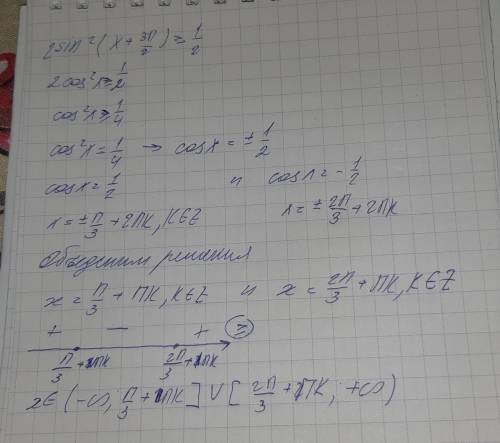 2sin²(x + 3π/2) ≥ 1/2
2cos²x ≥ 1/2
cos²x ≥ 1/4
cos²x = 1/4 → cosx = ± 1/2
cosx = 1/2 и cosx = - 1/2
x = ± π/3 + 2πK, K∈Z x = ± 2π/3 + 2πK
Объединим решения
x = π/3 + πK, K∈Z и x = 2π/3 + πK, K∈Z
+ − + ≥
π/3 + πK 2π/3 + πK
x∈ (-∞, π/3 + πK] ∪ [2π/3 + πK; +∞)